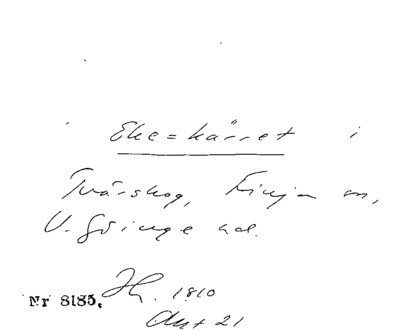 Ekekärret i
Tvärskog, Finja sn,
V. Göinge hd.
Nr 8185. Jh. 1810
Akt 21